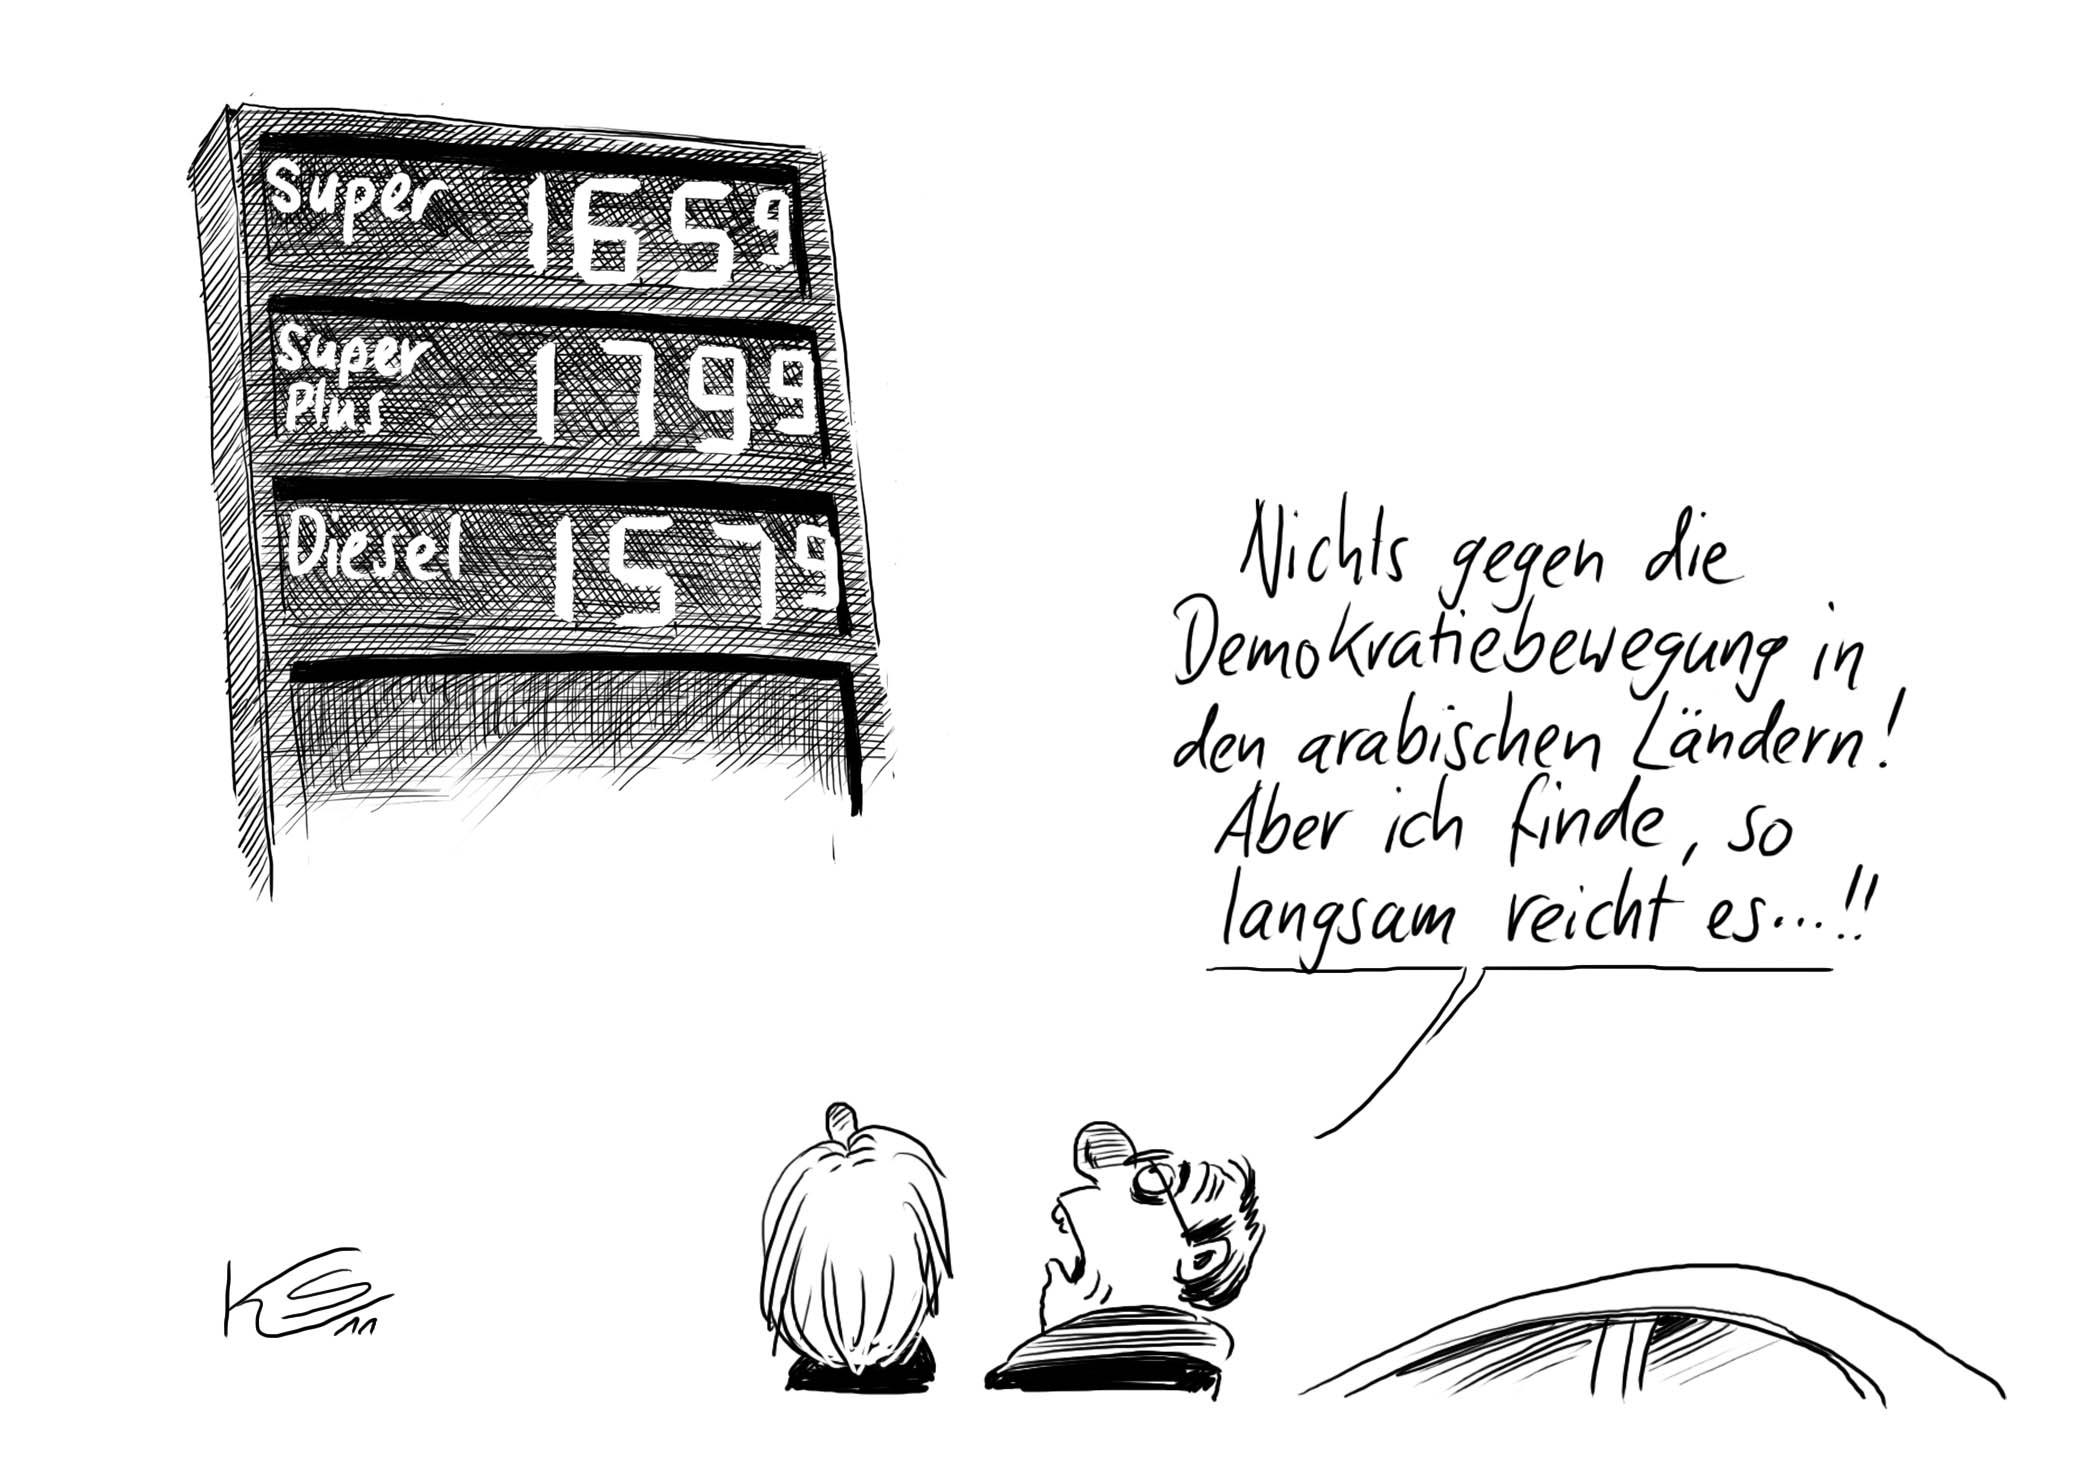 Super 1659
Super
Plus 1799
Diesel 1579
Nichts gegen die
Demokratiebewegung in
den arabischen Ländern!
Aber ich finde, so
langsam reicht es...!!
11